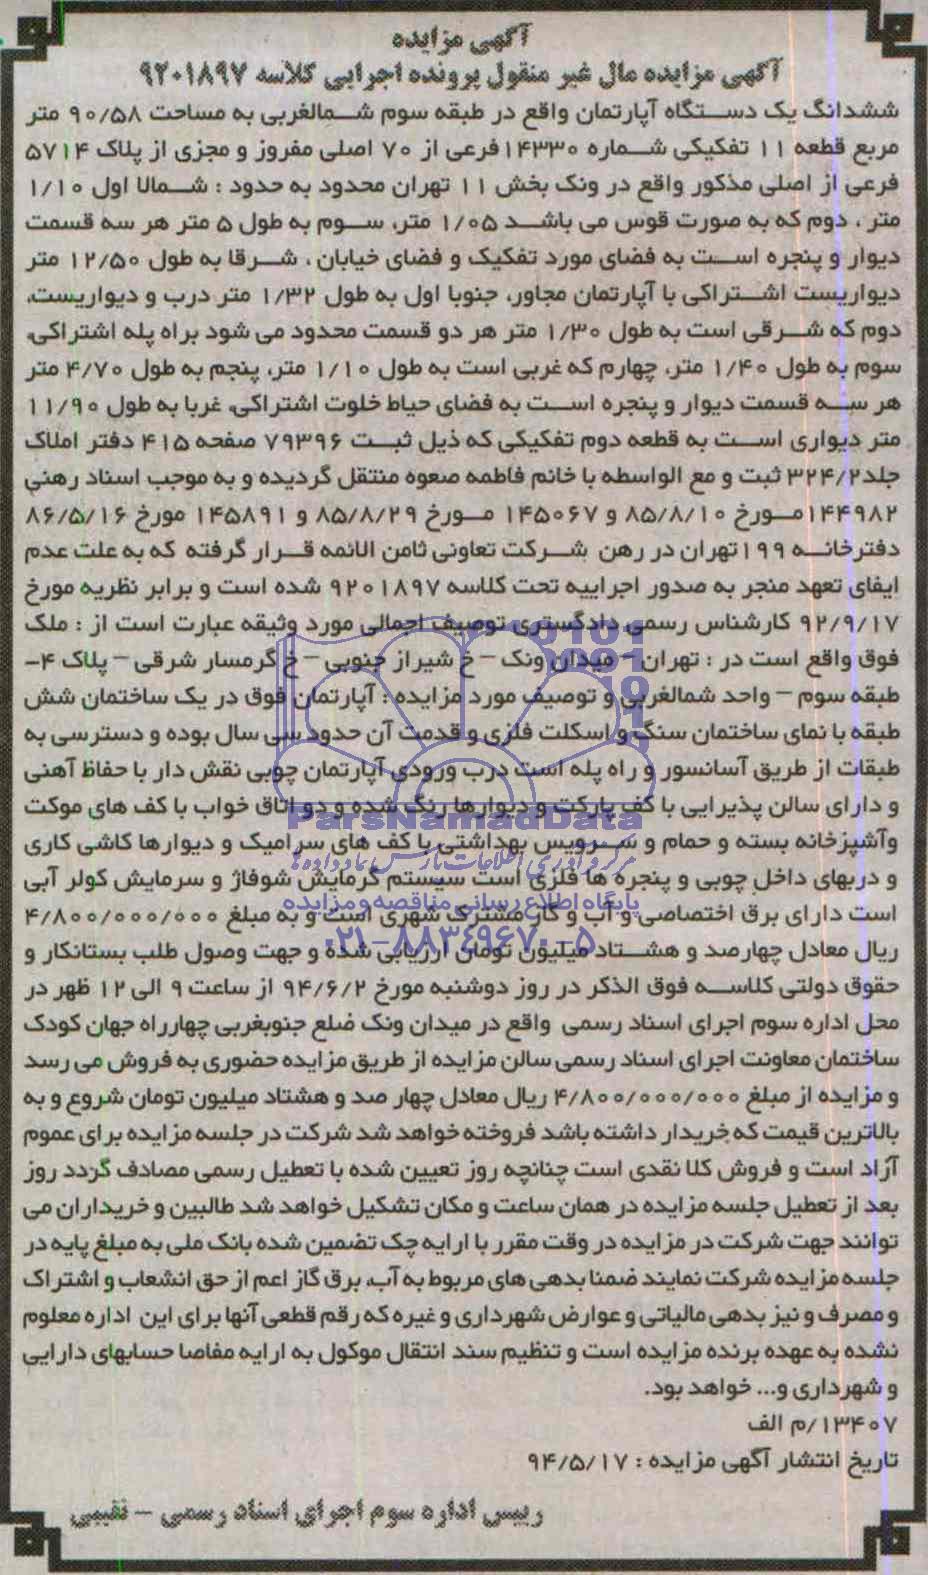 آگهی مزایده
آگهی مزایده مال غیر منقول پرونده اجرایی کلاسه ۹۲۰۱۸۹۷
ششدانگ یک دستگاه آپارتمان واقع در طبقه سوم شمالغربی به مساحت ۹۰/۵۸ متر
مربع قطعه ۱۱ تفکیکی شماره ۱۴۳۳۰فرعی از ۷۰ اصلی مفروز و مجزی از پلاک ۵۷۱۴
فرعی از اصلی مذکور واقع در ونک بخش ۱۱ تهران محدود به حدود : شمالا اول ۱/۱۰
متر ، دوم که به صورت قوس می باشد ۱/۰۵ متر، سوم به طول ۵ متر هر سه قسمت
دیوار و پنجره است به فضای مورد تفکیک و فضای خیابان ، شرقا به طول ۱۲/۵۰ متر
دیواریست اشتراکی با آپارتمان مجاور، جنوبا اول به طول ۱/۳۲ متر درب و دیواریست،
دوم که شرقی است به طول ۱/۳۰ متر هر دو قسمت محدود می شود براه پله اشتراکی،
سوم به طول ۱/۴۰ متر، چهارم که غربی است به طول ۱/۱۰ متر، پنجم به طول ۴/۷۰ متر
هر سه قسمت دیوار و پنجره است به فضای حیاط خلوت اشتراکی، غربا به طول ۱۱/۹۰
متر دیواری است به قطعه دوم تفکیکی که ذیل ثبت ۷۹۳۹۶ صفحه ۴۱۵ دفتر املاک
جلد۳۲۴/۲ ثبت و مع الواسطه با خانم فاطمه صعوه منتقل گردیده و به موجب اسناد رهنی
۱۴۴۹۸۲مورخ ۸۵/۸/۱۰ و ۱۴۵۰۶۷ مورخ ۸۵/۸/۲۹ و ۱۴۵۸۹۱ مورخ ۸۶/۵/۱۶
دفترخانه ۱۹۹تهران در رهن شرکت تعاونی ثامن الائمه قرار گرفته که به علت عدم
ایفای تعهد منجر به صدور اجراییه تحت کلاسه ۹۲۰۱۸۹۷ شده است و برابر نظریه مورخ
۹۲/۹/۱۷ کارشناس رسمی دادگستری توصیف اجمالی مورد وثیقه عبارت است از : ملک
فوق واقع است در : تهران – میدان ونک – خ شیراز جنوبی – خ گرمسار شرقی – پلاک ۴–
طبقه سوم – واحد شمالغربی و توصیف مورد مزایده : آپارتمان فوق در یک ساختمان شش
طبقه با نمای ساختمان سنگ و اسکلت فلزی و قدمت آن حدود سی سال بوده و دسترسی به
طبقات از طریق آسانسور و راه پله است درب ورودی آپارتمان چوبی نقش دار با حفاظ آهنی
و دارای سالن پذیرایی با کف پارکت و دیوارها رنگ شده و دو اتاق خواب با کف های موکت
ParsNamadData
وآشپزخانه بسته و حمام و سرویس بهداشتی با کف های سرامیک و دیوارها کاشی کاری
مرکز فرآوری اطلاعات پارس نماد داده ها
و دربهای داخل چوبی و پنجره ها فلزی است سیستم گرمایش شوفاژ و سرمایش کولر آبی
پایگاه اطلاع رسانی مناقصه و مزایده
است دارای برق اختصاصی و آب و گاز مشترک شهری است و به مبلغ ۴/۸۰۰/۰۰۰/۰۰۰
۰۲۱-۸۸۳۴۹۶۷۰-۵
ریال معادل چهارصد و هشتاد میلیون تومان ارزیابی شده و جهت وصول طلب بستانکار و
حقوق دولتی کلاسه فوق الذکر در روز دوشنبه مورخ ۹۴/۶/۲ از ساعت ۹ الی ۱۲ ظهر در
محل اداره سوم اجرای اسناد رسمی واقع در میدان ونک ضلع جنوبغربی چهارراه جهان کودک
ساختمان معاونت اجرای اسناد رسمی سالن مزایده از طریق مزایده حضوری به فروش می رسد
و مزایده از مبلغ ۴/۸۰۰/۰۰۰/۰۰۰ ریال معادل چهار صد و هشتاد میلیون تومان شروع و به
بالاترین قیمت که خریدار داشته باشد فروخته خواهد شد شرکت در جلسه مزایده برای عموم
آزاد است و فروش کلا نقدی است چنانچه روز تعیین شده با تعطیل رسمی مصادف گردد روز
بعد از تعطیل جلسه مزایده در همان ساعت و مکان تشکیل خواهد شد طالبین و خریداران می
توانند جهت شرکت در مزایده در وقت مقرر با ارایه چک تضمین شده بانک ملی به مبلغ پایه در
جلسه مزایده شرکت نمایند ضمنا بدهی های مربوط به آب، برق گاز اعم از حق انشعاب و اشتراک
و مصرف و نیز بدهی مالیاتی و عوارض شهرداری و غیره که رقم قطعی آنها برای این اداره معلوم
نشده به عهده برنده مزایده است و تنظیم سند انتقال موکول به ارایه مفاصا حسابهای دارایی
و شهرداری و... خواهد بود.
۱۳۴۰۷/م الف
تاریخ انتشار آگهی مزایده : ۹۴/۵/۱۷
رییس اداره سوم اجرای اسناد رسمی – نقیبی